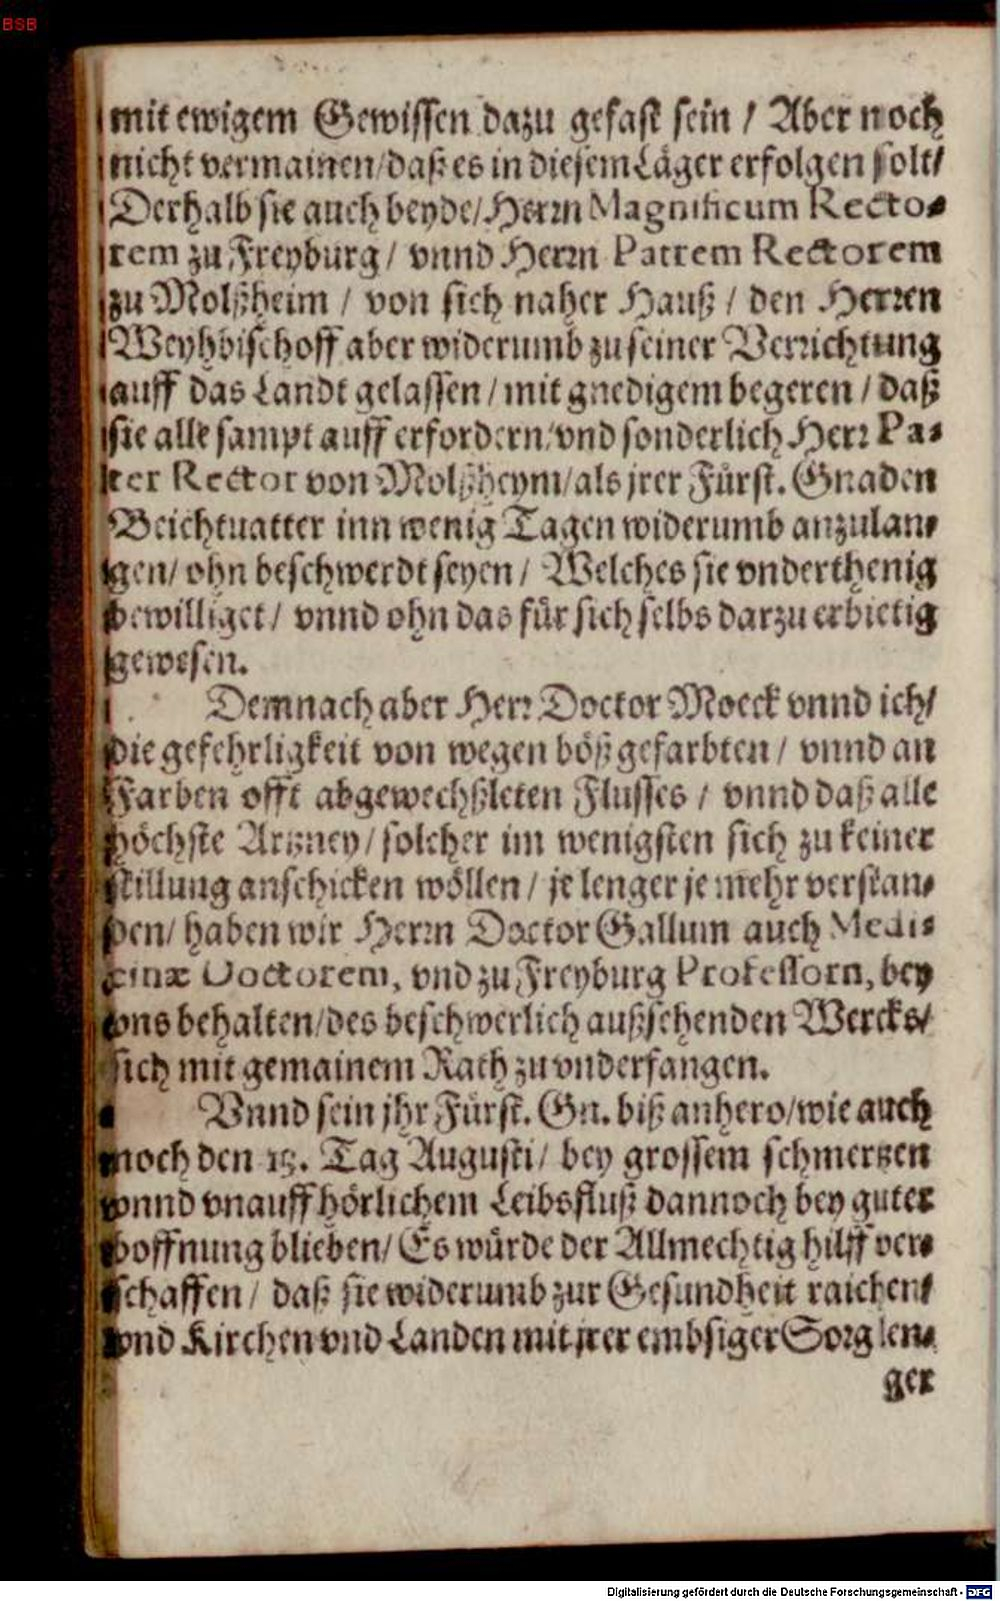 BSB
mit ewigem Gewissen dazu gefast sein / Aber noch
nicht vermainen / daß es in diesem Läger erfolgen solt /
Derhalb sie auch beyde / Herrn Magnificum Recto-
rem zu Freyburg / vnnd Herrn Patrem Rectorem
zu Molßheim / von sich naher Hauß / den Herren
Weyhbischoff aber widerumb zu seiner Verrichtung
auff das Landt gelassen / mit gnedigem begeren / daß
sie alle sampt auff erfordern / vnd sonderlich Herr Pa-
ter Rector von Molßheym / als jrer Fürst. Gnaden
Beichtuatter inn wenig Tagen widerumb anzulan-
gen / ohn beschwerdt seyen / Welches sie vnderthenig
bewilliget / vnnd ohn das für sich selbs darzu erbietig
gewesen.
Demnach aber Herr Doctor Moeck vnnd ich /
die gefehrligkeit von wegen böß gefarbten / vnnd an
Farben offt abgewechßleten Flusses / vnnd daß alle
höchste Artzney / solcher im wenigsten sich zu keiner
stillung anschicken wöllen / je lenger je mehr verstan-
den / haben wir Herrn Doctor Gallum auch Medi-
cinæ Doctorem, vnd zu Freyburg Professorn, bey
vns behalten / des beschwerlich außsehenden Wercks /
sich mit gemainem Rath zu vnderfangen.
Vnnd sein jhr Fürst. Gn. biß anhero / wie auch
noch den 13. Tag Augusti / bey grossem schmertzen
vnnd vnauffhörlichem Leibsfluß dannoch bey guter
hoffnung blieben / Es würde der Allmechtig hilff ver-
schaffen / daß sie widerumb zur Gesundheit raichen /
vnd Kirchen vnd Landen mit jrer embsiger Sorg len-
ger
Digitalisierung gefördert durch die Deutsche Forschungsgemeinschaft - DFG